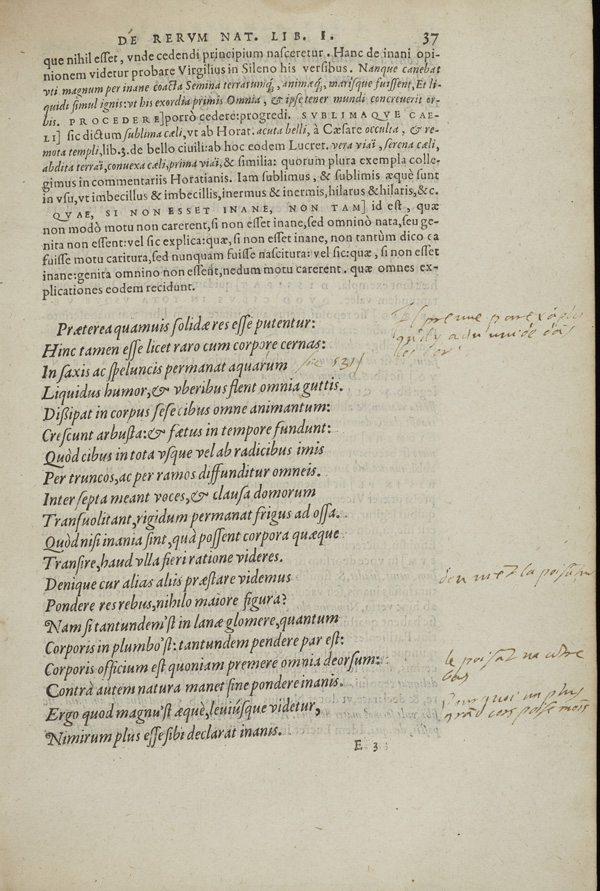 DE RERVM NAT. LIB. I. 37
que nihil esset, vnde cedendi principium nasceretur. Hanc de inani opi-
nionem videtur probare Virgilius in Sileno his versibus. Nanque canebat
vti magnum per inane coacta Semina terrarumq́, animæq́, marisque fuissent, Et li-
quidi simul ignis: vt his exordia primis Omnia, & ipse tener mundi concreuerit or-
bis. PROCEDERE] porrò cedere: progredi. SVBLIMAQVE CAE-
LI] sic dictum sublima cæli, vt ab Horat. acuta belli, à Cæsare occulta, & re-
mota templi, lib. 3. de bello ciuili: ab hoc eodem Lucret. vera viaï, serena cæli,
abdita terraï, conuexa cæli, prima viaï, & similia: quorum plura exempla colle-
gimus in commentariis Horatianis. Iam sublimus, & sublimis æquè sunt
in vsu, vt imbecillus & imbecillis, inermus & inermis, hilarus & hilaris, &c.
QVAE, SI NON ESSET INANE, NON TAM] id est, quæ
non modò motu non carerent, si non esset inane, sed omninò nata, seu ge-
nita non essent: vel sic explica: quæ, si non esset inane, non tantùm dico ea
fuisse motu caritura, sed nunquam fuisse nascitura: vel sic: quæ, si non esset
inane: genita omnino non essent, nedum motu carerent. quæ omnes ex-
plicationes eodem recidunt.
Præterea quamuis solidæ res esse putentur:
Hinc tamen esse licet raro cum corpore cernas:
In saxis ac speluncis permanat aquarum
Liquidus humor, & vberibus flent omnia guttis.
Dißipat in corpus sese cibus omne animantum:
Crescunt arbusta: & fætus in tempore fundunt:
Quòd cibus in tota vsque vel ab radicibus imis
Per truncos, ac per ramos diffunditur omneis.
Inter septa meant voces, & clausa domorum
Transuolitant, rigidum permanat frigus ad ossa.
Quòd nisi inania sint, quà possent corpora quæque
Transire, haud vlla fieri ratione videres.
Denique cur alias aliis præstare videmus
Pondere res rebus, nihilo maiore figura?
Nam si tantundem'st in lanæ glomere, quantum
Corporis in plumbo'st: tantundem pendere par est:
Corporis officium est quoniam premere omnia deorsum:
Contrà autem natura manet sine pondere inanis.
Ergo quod magnu'st æquè, leuiúsque videtur,
Nimirum plus esse sibi declarat inanis.
E 3
531
la
le
Pourquoi un plus